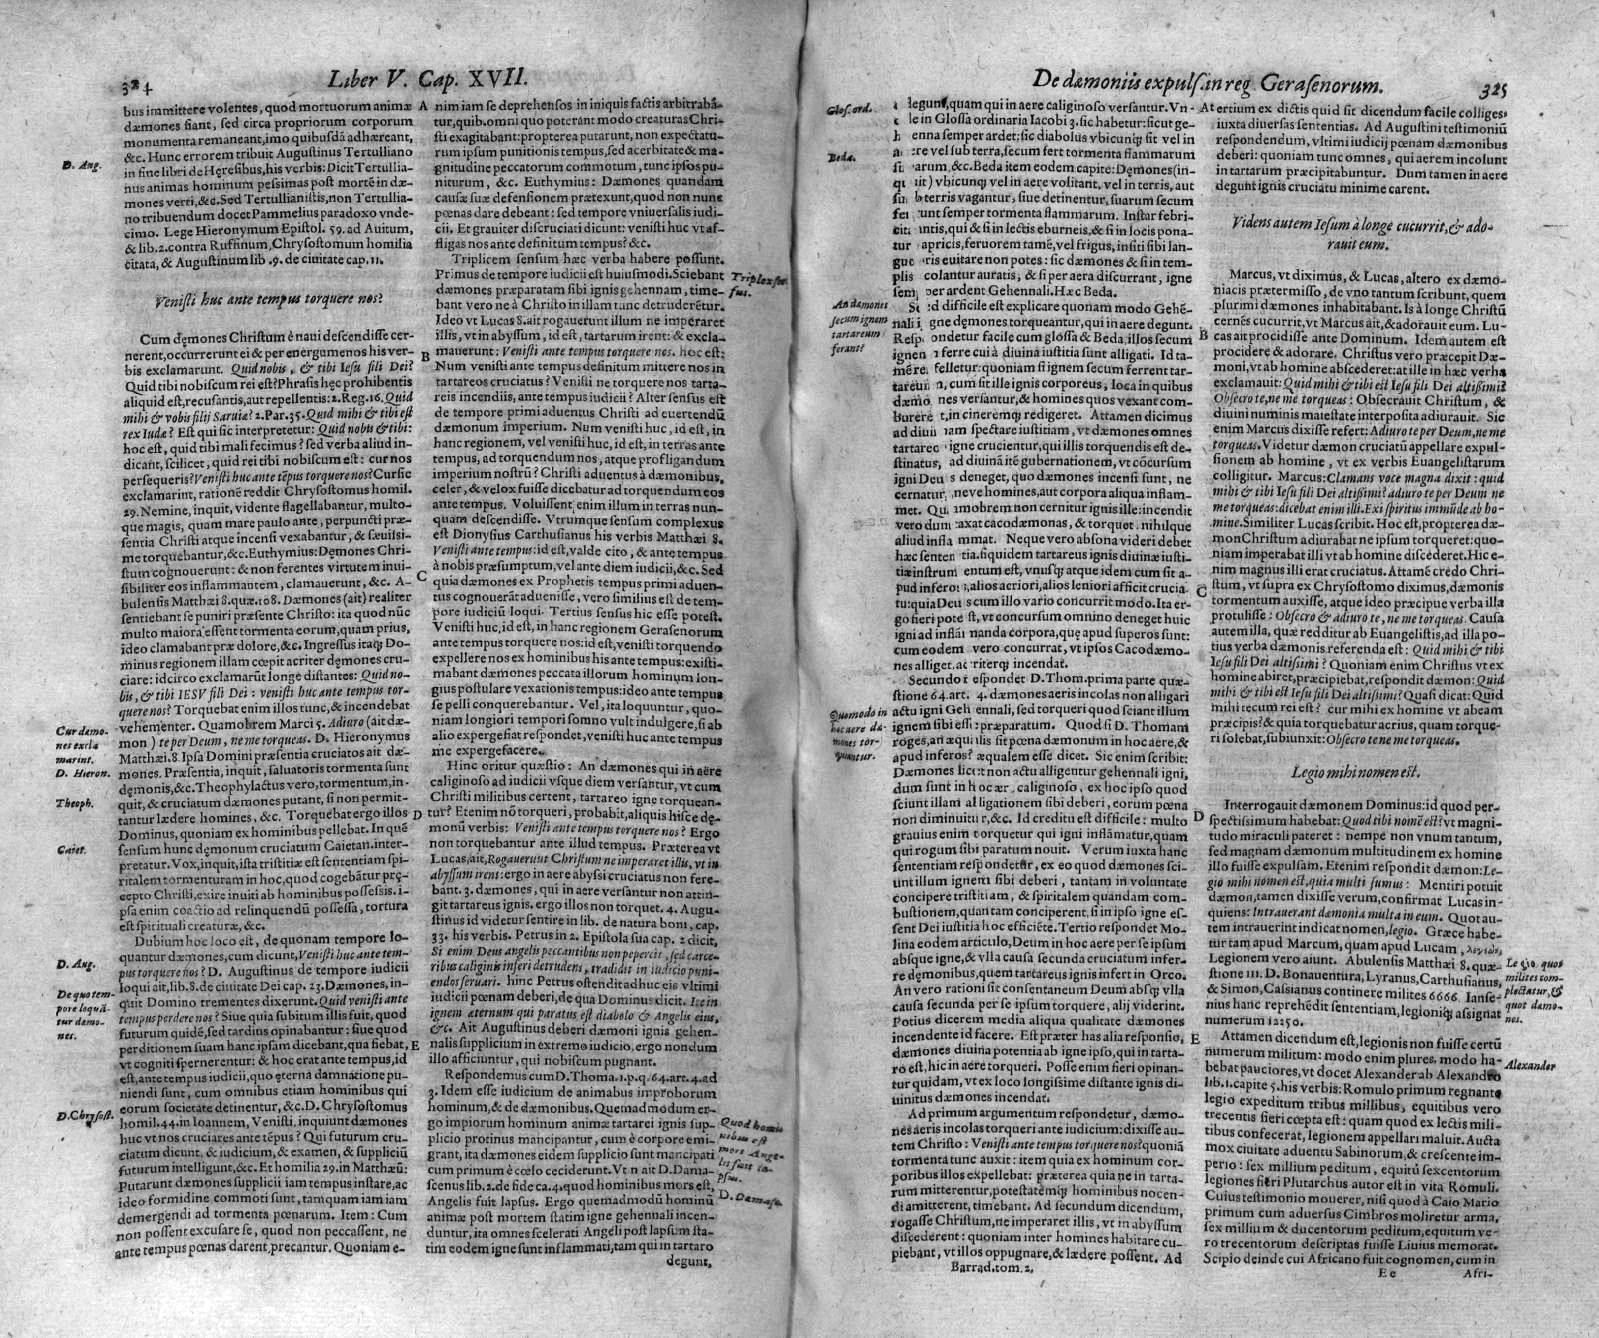 324
Liber V. Cap. XVII.
bus immittere volentes, quod mortuorum animæ
dæmones fiant, sed circa propriorum corporum
monumenta remaneant, imo quibusdā adhæreant,
&c. Hunc errorem tribuit Augustinus Tertulliano
in fine libri de Hęresibus, his verbis: Dicit Tertullia-
nus animas hominum pessimas post mortē in dæ-
mones verti, &c. Sed Tertullianistis, non Tertullia-
no tribuendum docet Pammelius paradoxo vnde-
cimo. Lege Hieronymum Epistol. 59. ad Auitum,
& lib. 2. contra Ruffinum, Chrysostomum homilia
citata, & Augustinum lib. 9. de ciuitate cap. 11.
Venisti huc ante tempus torquere nos?
Cum dęmones Christum è naui descendisse cer-
nerent, occurrerunt ei & per energumenos his ver-
bis exclamarunt. Quid nobis, & tibi Iesu fili Dei?
Quid tibi nobiscum rei est? Phrasis hęc prohibentis
aliquid est, recusantis, aut repellentis: 2. Reg. 16. Quid
mihi & vobis filij Saruiæ? 2. Par. 35. Quid mihi & tibi est
rex Iudæ? Est qui sic interpretetur: Quid nobis & tibi:
hoc est, quid tibi mali fecimus? sed verba aliud in-
dicant, scilicet, quid rei tibi nobiscum est: cur nos
persequeris? Venisti huc ante tēpus torquere nos? Cur sic
exclamarint, rationē reddit Chrysostomus homil.
29. Nemine, inquit, vidente flagellabantur, multo-
que magis, quam mare paulo ante, perpuncti præ-
sentia Christi atque incensi vexabantur, & sæuissi-
me torquebantur, &c. Euthymius: Dęmones Chri-
stum cognouerunt: & non ferentes virtutem inui-
sibiliter eos inflammantem, clamauerunt, &c. A-
bulensis Matthæi 8. quæ. 108. Dæmones (ait) realiter
sentiebant se puniri præsente Christo: ita quod nūc
multo maiora essent tormenta eorum, quam prius,
ideo clamabant præ dolore, &c. Ingressus itaq; Do-
minus regionem illam cœpit acriter dęmones cru-
ciare: idcirco exclamarūt longe distantes: Quid no-
bis, & tibi IESV fili Dei: venisti huc ante tempus tor-
quere nos? Torquebat enim illos tunc, & incendebat
vehementer. Quamobrem Marci 5. Adiuro (ait dæ-
mon) te per Deum, ne me torqueas. D. Hieronymus
Matthæi. 8. Ipsa Domini præsentia cruciatos ait dæ-
mones. Præsentia, inquit, saluatoris tormenta sunt
dęmonis, &c. Theophylactus vero, tormentum, in-
quit, & cruciatum dæmones putant, si non permit-
tantur lædere homines, &c. Torquebat ergo illos
Dominus, quoniam ex hominibus pellebat. In quē
sensum hunc dęmonum cruciatum Caietan. inter-
pretatur. Vox, inquit, ista tristitiæ est sententiam spi-
ritalem tormenturam in hoc, quod cogebātur pręcepto Christi, exire inuiti ab hominibus possessis. i-
psa enim coactio ad relinquendū possessa, tortura
est spirituali creaturæ, &c.
Dubium hoc loco est, de quonam tempore lo-
quantur dæmones, cum dicunt, Venisti huc ante tem-
pus torquere nos? D. Augustinus de tempore iudicii
loqui ait, lib. 8. de ciuitate Dei cap. 23. Dæmones, in-
quit Domino trementes dixerunt. Quid venisti ante
tempus perdere nos? Siue quia subitum illis fuit, quod
futurum quidē, sed tardius opinabantur: siue quod
perditionem suam hanc ipsam dicebant, qua fiebat,
vt cogniti spernerentur: & hoc erat ante tempus, id
est, ante tempus iudicii, quo ęterna damnatione pu-
niendi sunt, cum omnibus etiam hominibus qui
eorum societate detinentur, &c. D. Chrysostomus
homil. 44. in Ioannem, Venisti, inquiunt dæmones
huc vt nos cruciares ante tēpus? Qui futurum cru-
ciatum dicunt, & iudicium, & examen, & suppliciū
futurum intelligunt, &c. Et homilia 29. in Matthæū:
Putarunt dæmones supplicii iam tempus instare, ac
ideo formidine commoti sunt, tamquam iam iam
demergendi ad tormenta pœnarum. Item: Cum
non possent excusare se, quod non peccassent, ne
ante tempus pœnas darent, precantur. Quoniam e-
D. Aug.
Cur dæmo-
nes excla
marint.
D. Hieron.
Theoph.
Caiet.
D. Aug.
De quo tem-
pore loquū-
tur dæmo-
nes.
D. Chrysost.
A
B
C
D
E
nim iam se deprehensos in iniquis factis arbitrabā-
tur, quib. omni quo poterant modo creaturas Chri-
sti exagitabant: propterea putarunt, non expectatu-
rum ipsum punitionis tempus, sed acerbitate & ma-
gnitudine peccatorum commotum, tunc ipsos pu-
niturum, &c. Euthymius: Dæmones quandam
causæ suæ defensionem prætexunt, quod non nunc
pœnas dare debeant: sed tempore vniuersalis iudi-
cii. Et grauiter discruciati dicunt: venisti huc vt af-
fligas nos ante definitum tempus? &c.
Triplicem sensum hæc verba habere possunt.
Primus de tempore iudicii est huiusmodi. Sciebant
dæmones præparatam sibi ignis gehennam, time-
bant vero ne à Christo in illam tunc detruderētur.
Ideo vt Lucas 8. ait rogauerunt illum ne imperaret
illis, vt in abyssum, id est, tartarum irent: & excla-
mauerunt: Venisti ante tempus torquere nos. hoc est:
Num venisti ante tempus definitum mittere nos in
tartareos cruciatus? Venisti ne torquere nos tarta-
reis incendiis, ante tempus iudicii? Alter sensus est
de tempore primi aduentus Christi ad euertendū
dæmonum imperium. Num venisti huc, id est, in
hanc regionem, vel venisti huc, id est, in terras ante
tempus, ad torquendum nos, atque profligandum
imperium nostrū? Christi aduentus à dæmonibus,
celer, & velox fuisse dicebatur ad torquendum eos
ante tempus. Voluissent enim illum in terras nun-
quam descendisse. Vtrumque sensum complexus
est Dionysius Carthusianus his verbis Matthæi 8.
Venisti ante tempus: id est, valde cito, & ante tempus
à nobis præsumptum, vel ante diem iudicii, &c. Sed
quia dæmones ex Prophetis tempus primi aduen-
tus cognouerāt aduenisse, vero similius est de tem-
pore iudiciū loqui. Tertius sensus hic esse potest.
Venisti huc, id est, in hanc regionem Gerasenorum
ante tempus torquere nos: id est, venisti torquendo
expellere nos ex hominibus his ante tempus: existi-
mabant dæmones peccata illorum hominum lon-
gius postulare vexationis tempus: ideo ante tempus
se pelli conquerebantur. Vel, ita loquuntur, quo-
niam longiori tempori somno vult indulgere, si ab
alio expergefiat respondet, venisti huc ante tempus
me expergefacere.
Hinc oritur quæstio: An dæmones qui in aëre
caliginoso ad iudicii vsque diem versantur, vt cum
Christi militibus certent, tartareo igne torquean-
tur? Etenim nō torqueri, probabit, aliquis hisce dę-
monū verbis: Venisti ante tempus torquere nos? Ergo
non torquebantur ante illud tempus. Præterea vt
Lucas, ait, Rogauerunt Christum ne imperaret illis, vt in
abyssum irent: ergo in aere abyssi cruciatus non fere-
bant. 3. dæmones, qui in aere versantur non attin-
git tartareus ignis. ergo illos non torquet. 4. Augu-
stinus id videtur sentire in lib. de natura boni, cap.
33. his verbis. Petrus in 2. Epistola sua cap. 2 dicit,
Si enim Deus angelis peccantibus non pepercit, sed carce-
ribus caliginis inferi detrudens, tradidit in iudicio puni-
endos seruari. hinc Petrus ostendit adhuc eis vltimi
iudicii pœnam deberi, de qua Dominus dicit. Ite in
ignem æternum qui paratus est diabolo & Angelis eius,
&c. Ait Augustinus deberi dæmoni ignis gehen-
nalis supplicium in extremo iudicio, ergo nondum
illo afficiuntur, qui nobiscum pugnant.
Respondemus cum D. Thoma. 1. p. q. 64. art. 4. ad
3. Idem esse iudicium de animabus improborum
hominum, & de dæmonibus. Quemadmodum er-
go impiorum hominum animæ tartarei ignis sup-
plicio protinus mancipantur, cum è corpore emi-
grant, ita dæmones eidem supplicio sunt mancipati
cum primum è cœlo ceciderunt. Vt n ait D. Dama-
scenus lib. 2. de fide ca. 4. quod hominibus mors est,
Angelis fuit lapsus. Ergo quemadmodū hominū
animæ post mortem statim igne gehennali incen-
duntur, ita omnes scelerati Angeli post lapsum sta-
tim eodem igne sunt inflammati, tam qui in tartaro
degunt,
Triplex sen-
sus.
Quod homi-
nibus est
mors Ange-
lis fuit la-
psus.
D. Damasc.
De dæmoniis expuls. in reg. Gerasenorum.
325
Glos. ord.
Bedæ.
An dæmones
secum ignem
tartareum
ferant?
Quomodo in
hoc aere dæ-
mones tor-
quantur.
legunt, quam qui in aere caliginoso versantur. Vn-
le in Glossa ordinaria Iacobi 3. sic habetur: sicut ge-
enna semper ardet: sic diabolus vbicunq; sit vel in
re vel sub terra, secum fert tormenta flammarum
arum, &c. Beda item eodem capite: Dęmones (in-
uit) vbicunq; vel in aere volitant, vel in terris, aut
b terris vagantur, siue detinentur, suarum secum
unt semper tormenta flammarum. Instar febri-
untis, qui & si in lectis eburneis, & si in locis pona-
apricis, feruorem tamē, vel frigus, insiti sibi lan-
ris euitare non potes: sic dæmones & si in tem-
colantur auratis, & si per aera discurrant, igne
per ardent Gehennali. Hæc Beda.
Sed difficile est explicare quonam modo Gehē-
nali igne dęmones torqueantur, qui in aere degunt.
Respondetur facile cum glossa & Beda, illos secum
ignem ferre cui à diuina iustitia sunt alligati. Id ta-
mē refelletur: quoniam si ignem secum ferrent tar-
tareum, cum sit ille ignis corporeus, loca in quibus
dæmones versantur, & homines quos vexant com-
bureret, in cineremq; redigeret. Attamen dicimus
ad diuinam spectare iustitiam, vt dæmones omnes
tartareo igne crucientur, qui illis torquendis est de-
stinatus, ad diuinā itē gubernationem, vt cōcursum
igni Deus deneget, quo dæmones incensi sunt, ne
cernatur, neve homines, aut corpora aliqua inflam-
met. Quamobrem non cernitur ignis ille: incendit
vero dumtaxat cacodæmonas, & torquet. nihilque
aliud inflammat. Neque vero absona videri debet
hæc sententia. siquidem tartareus ignis diuinæ iusti-
tiæ instrumentum est, vnusq; atque idem cum sit a-
pud inferos, alios acriori, alios leniori afficit crucia-
tu: quia Deus cum illo vario concurrit modo. Ita er-
go fieri potest, vt concursum omnino deneget huic
igni ad inflammanda corpora, quę apud superos sunt:
cum eodem vero concurrat, vt ipsos Cacodæmo-
nes alliget. acriterq; incendat.
Secundo respondet D. Thom. prima parte quæ-
stione 64. art. 4. dæmones aeris incolas non alligari
actu igni Gehennali, sed torqueri quod sciant illum
ignem sibi esse præparatum. Quod si D. Thomam
roges, an æqualis sit pœna dæmonum in hoc aere, &
apud inferos? æqualem esse dicet. Sic enim scribit:
Dæmones licet non actu alligentur gehennali igni,
dum sunt in hoc aer. caliginoso, ex hoc ipso quod
sciunt illam alligationem sibi deberi, eorum pœna
non diminuitur, &c. Id creditu est difficile: multo
grauius enim torquetur qui igni inflāmatur, quam
qui rogum sibi paratum nouit. Verum iuxta hanc
sententiam respondetur, ex eo quod dæmones sci-
unt illum ignem sibi deberi, tantam in voluntate
concipere tristitiam, & spiritalem quandam com-
bustionem, quantam conciperent, si in ipso igne es-
sent Dei iustitia hoc efficiēte. Tertio respondet Mo-
lina eodem articulo, Deum in hoc aere per se ipsum
absque igne, & vlla causa secunda cruciatum infer-
re dęmonibus, quem tartareus ignis infert in Orco.
An vero rationi sit consentaneum Deum absq; vlla
causa secunda per se ipsum torquere, alij viderint.
Potius dicerem media aliqua qualitate dæmones
incendente id facere. Est præter has alia responsio,
dæmones diuina potentia ab igne ipso, qui in tarta-
ro est, hic in aere torqueri. Posse enim fieri opinan-
tur quidam, vt ex loco longissime distante ignis di-
uinitus dæmones incendat.
Ad primum argumentum respondetur, dæmo-
nes aeris incolas torqueri ante iudicium: dixisse au-
tem Christo: Venisti ante tempus torquere nos? quoniā
tormenta tunc auxit: item quia ex hominum cor-
poribus illos expellebat: præterea quia ne in tarta-
rum mitterentur, potestatemq; hominibus nocen-
di amitterent, timebant. Ad secundum dicendum,
rogasse Christum, ne imperaret illis, vt in abyssum
discederent: quoniam inter homines habitare cu-
piebant, vt illos oppugnare, & lædere possent. Ad
Barrad. tom. 2.
A
B
C
D
E
tertium ex dictis quid sit dicendum facile colliges:
iuxta diuersas sententias. Ad Augustini testimoniū
respondendum, vltimi iudicij pœnam dæmonibus
deberi: quoniam tunc omnes, qui aerem incolunt
in tartarum præcipitabuntur. Dum tamen in aere
degunt ignis cruciatu minime carent.
Videns autem Iesum à longe cucurrit, & ado-
rauit eum.
Marcus, vt diximus, & Lucas, altero ex dæmo-
niacis prætermisso, de vno tantum scribunt, quem
plurimi dæmones inhabitabant. Is à longe Christū
cernēs cucurrit, vt Marcus ait, & adorauit eum. Lu-
cas ait procidisse ante Dominum. Idem autem est
procidere & adorare. Christus vero præcepit Dæ-
moni, vt ab homine abscederet: at ille in hæc verba
exclamauit: Quid mihi & tibi est Iesu fili Dei altissimi?
Obsecro te, ne me torqueas: Obsecrauit Christum, &
diuini numinis maiestate interposita adiurauit. Sic
enim Marcus dixisse refert: Adiuro te per Deum, ne me
torqueas. Videtur dæmon cruciatū appellare expul-
sionem ab homine, vt ex verbis Euangelistarum
colligitur. Marcus: Clamans voce magna dixit: quid
mihi & tibi Iesu fili Dei altissimi? adiuro te per Deum ne
me torqueas: dicebat enim illi. Exi spiritus immūde ab ho-
mine. Similiter Lucas scribit. Hoc est, propterea dæ-
mon Christum adiurabat ne ipsum torqueret: quo-
niam imperabat illi vt ab homine discēderet. Hic e-
nim magnus illi erat cruciatus. Attamē credo Chri-
stum, vt supra ex Chrysostomo diximus, dæmonis
tormentum auxisse, atque ideo præcipue verba illa
protulisse: Obsecro & adiuro te, ne me torqueas. Causa
autem illa, quæ redditur ab Euangelistis, ad illa po-
tius verba dæmonis referenda est: Quid mihi & tibi
Iesu fili Dei altissimi? Quoniam enim Christus vt ex
homine abiret, præcipiebat, respondit dæmon: Quid
mihi & tibi est Iesu fili Dei altissimi? Quasi dicat: Quid
mihi tecum rei est? cur mihi ex homine vt abeam
præcipis? & quia torquebatur acrius, quam torque-
ri solebat, subiunxit: Obsecro te ne me torqueas.
Legio mihi nomen est.
Interrogauit dæmonem Dominus: id quod per-
spectissimum habebat: Quod tibi nomē est? vt magni-
tudo miraculi pateret: nempe non vnum tantum,
sed magnam dæmonum multitudinem ex homine
illo fuisse expulsam. Etenim respondit dæmon: Le-
gio mihi nomen est, quia multi sumus: Mentiri potuit
dæmon, tamen dixisse verum, confirmat Lucas in-
quiens: Intrauerant dæmonia multa in eum. Quot au-
tem intrauerint indicat nomen, legio. Græce habe-
tur tam apud Marcum, quam apud Lucam, λεγεών,
Legionem vero aiunt. Abulensis Matthæi 8. quæ-
stione 111. D. Bonauentura, Lyranus, Carthusianus,
& Simon, Cassianus continere milites 6666. Ianse-
nius hanc reprehēdit sententiam, legioniq; assignat
numerum 12250.
Attamen dicendum est, legionis non fuisse certū
numerum militum: modo enim plures, modo ha-
bebat pauciores, vt docet Alexander ab Alexandro
lib. 1. capite 5. his verbis: Romulo primum regnante
legio expeditum tribus millibus, equitibus vero
trecentis fieri cœpta est: quam quod ex lectis mili-
tibus confecerat, legionem appellari maluit. Aucta
mox ciuitate aduentu Sabinorum, & crescente im-
perio: sex millium peditum, equitū sexcentorum
legiones fieri Plutarchus autor est in vita Romuli.
Cuius testimonio mouerer, nisi quod à Caio Mario
primum cum aduersus Cimbros moliretur arma,
sex millium & ducentorum peditum, equitum ve-
ro trecentorum descriptas fuisse Liuius memorat.
Scipio deinde cui Africano fuit cognomen, cum in
Ee
Afri-
Legio quos
milites com-
plectatur, &
quot dæmo-
nes.
Alexander